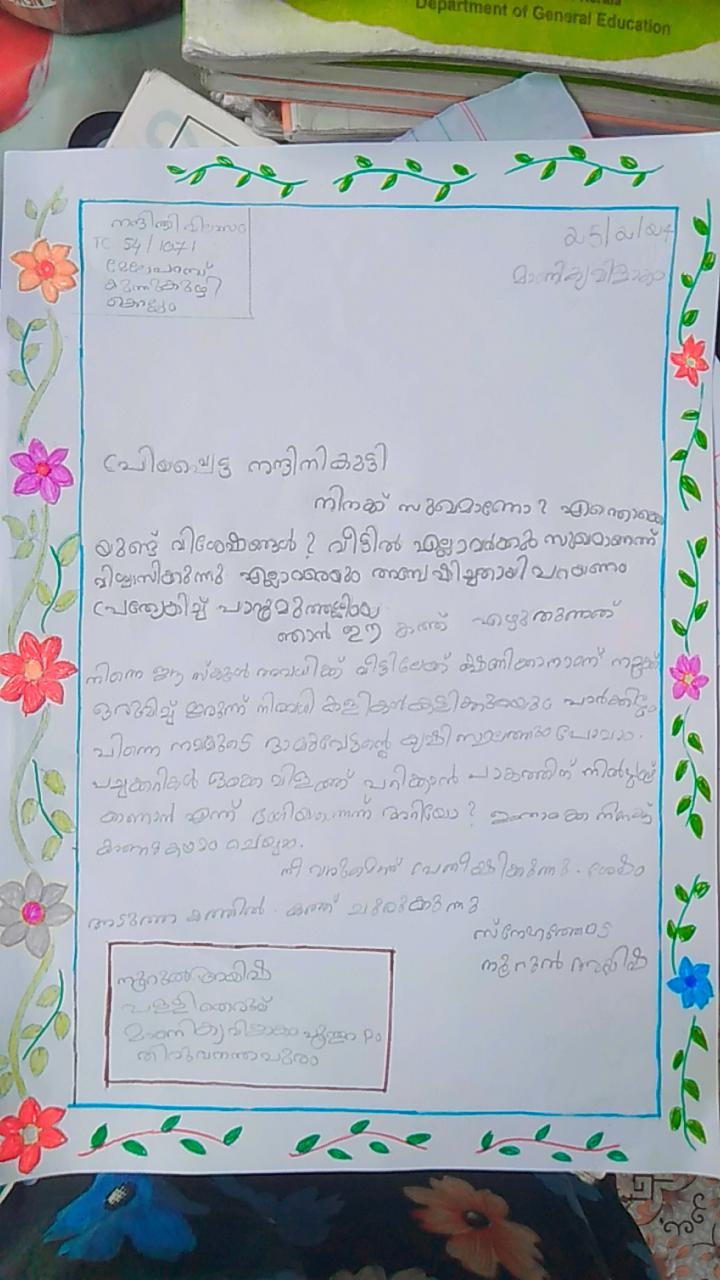 Department of General Education
നന്ദിനി വിലാസം
TC 54/1071
മേലേപറമ്പ്
കുന്നുകുഴി
കൊല്ലം
25/2/24
മാണിക്യവിളാകം
പ്രിയപ്പെട്ട നന്ദിനികുട്ടി
നിനക്ക് സുഖമാണോ? എന്തൊക്കെ
യുണ്ട് വിശേഷങ്ങൾ? വീട്ടിൽ എല്ലാവർക്കും സുഖമാണെന്ന്
വിശ്വസിക്കുന്നു എല്ലാവരെയും അന്വേഷിച്ചതായി പറയണം
പ്രത്യേകിച്ച് പാറുമുത്തശ്ശിയെ
ഞാൻ ഈ കത്ത് എഴുതുന്നത്
നിന്നെ ഈ സ്കൂൾ അവധിക്ക് വീട്ടിലേക്ക് ക്ഷണിക്കാനാണ് നമുക്ക്
ഒരുമിച്ച് ഇരുന്ന് നിരവധി കളികൾ കളിക്കുകയും പാർക്കിലും
പിന്നെ നമ്മുടെ ദാമുവേട്ടന്റെ കൃഷി സ്ഥലത്തും പോവാം.
പച്ചക്കറികൾ ഒക്കെ വിളഞ്ഞ് പറിക്കാൻ പാകത്തിന് നിൽപ്പുണ്ട്
കാണാൻ എന്ത് ഭംഗിയാണെന്ന് അറിയോ? ഇതൊക്കെ നിനക്ക്
കാണുകയും ചെയ്യാം.
നീ വരുമെന്ന് പ്രതീക്ഷിക്കുന്നു. ശേഷം
അടുത്ത കത്തിൽ. കത്ത് ചുരുക്കുന്നു
സ്നേഹത്തോടെ
നൂറുൽ ആയിഷ
നൂറുൽ ആയിഷ
പള്ളിതെരുവ്
മാണിക്യവിളാകം പൂന്തുറ P.O
തിരുവനന്തപുരം